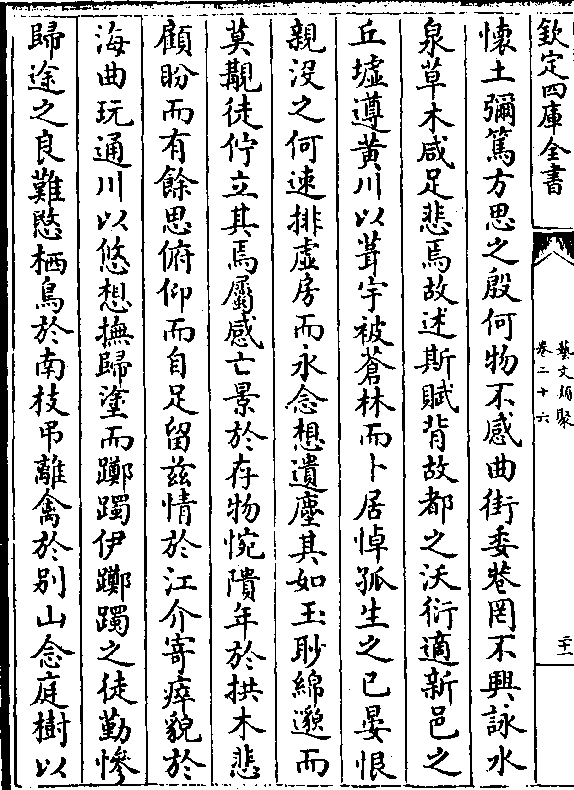 欽定四庫全書
藝文類聚
卷二十六
二十一
懷土彌篤方思之殷何物不感曲街委巷罔不興詠水
泉草木咸足悲焉故述斯賦背故都之沃衍適新邑之
丘墟遵黃川以葺宇被蒼林而卜居悼孤生之已晏恨
親沒之何速排虛房而永念想遺塵其如玉眇綿邈而
莫覯徒佇立其焉屬感亡景於存物惋隤年於拱木悲
顧盼而有餘思俯仰而自足留玆情於江介寄瘁貌於
海曲玩通川以悠想撫歸塗而躑躅伊躑躅之徒勤慘
歸途之良難愍栖鳥於南枝弔離禽於别山念庭樹以